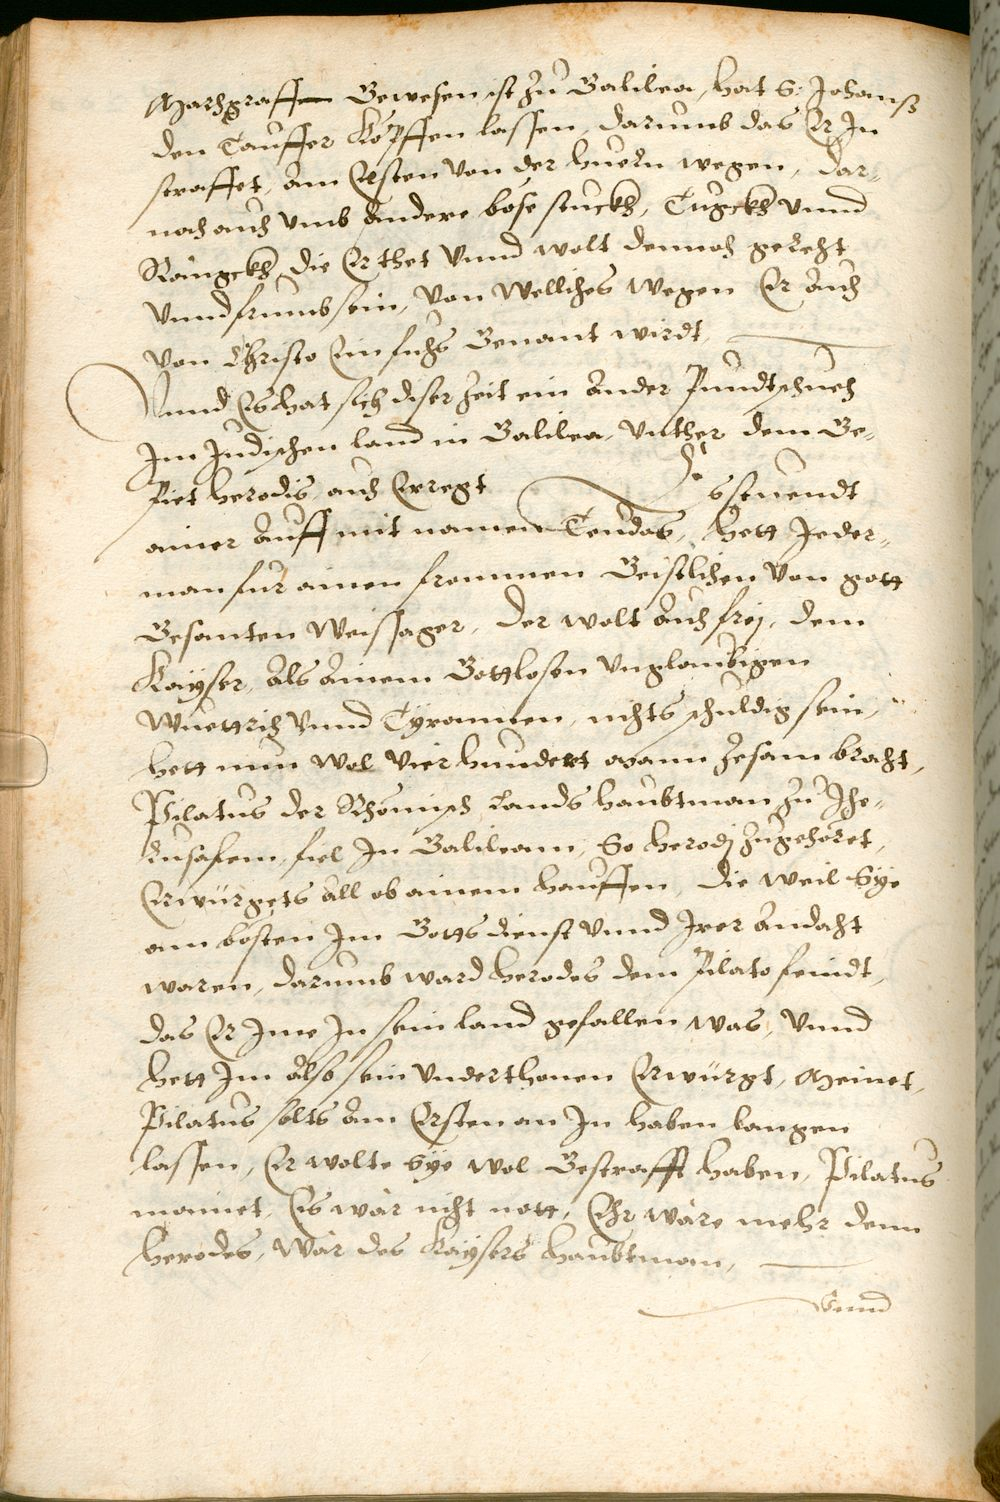 Marchgraffen Gewesen ist zu Galilea, hat S: Johanß
den Tauffer Köpffen lassen, darumb das Er In
straffet, am Ersten von der huern wegen, dar„
nach auch vmb andere böse stuckh, Tugckh vnnd
Rängckh die Er thet Vnnd wolt dennoch gerecht
Vnnd frumb sein, Von Welliches wegen Er auch
Von Christo Ein fuchs Genant wirdt,
Vnnd Es hat sich diser Zeit ein ander Pundtschuech
Im Judischen land in Galilea, Vnther dem Ge„
piet herodis, auch Erregt Es stuendt
ainer auff mit namen Teudas, hett Jeder„
man fur ainen frommen Geistlichen Von gott
Gesanten Weissager, der wolt auch frej, dem
Kayser, als ainem Gottlosen Vnglaubigen
Wuettrich Vnnd Tyrannen, nichts schuldig sein,
hett nun wol vier hundert mann zesam bracht,
Pilatus der Rhömisch Lands haubtman zu Jhe„
rusalem, fiel In Galileam, So herodj zugehöret,
Erwürgets all ob ainem hauffen, die weil Sye
am bosten Im Gotts dienst Vnnd Irer andacht
waren, darumb ward herodes dem Pilato feindt,
das Er Ime In sein land gefallen was, Vnnd
hett Im also sein Vnderthonen Erwürgt, Meinet,
Pilatus solts am Ersten an In haben langen
lassen, Er wolte Sye wol Gestrafft haben, Pilatus
mainet, Es wär nicht nott, Ehr wäre mehr denn
herodes, Wär des Kaysers haubtman,
Vnnd